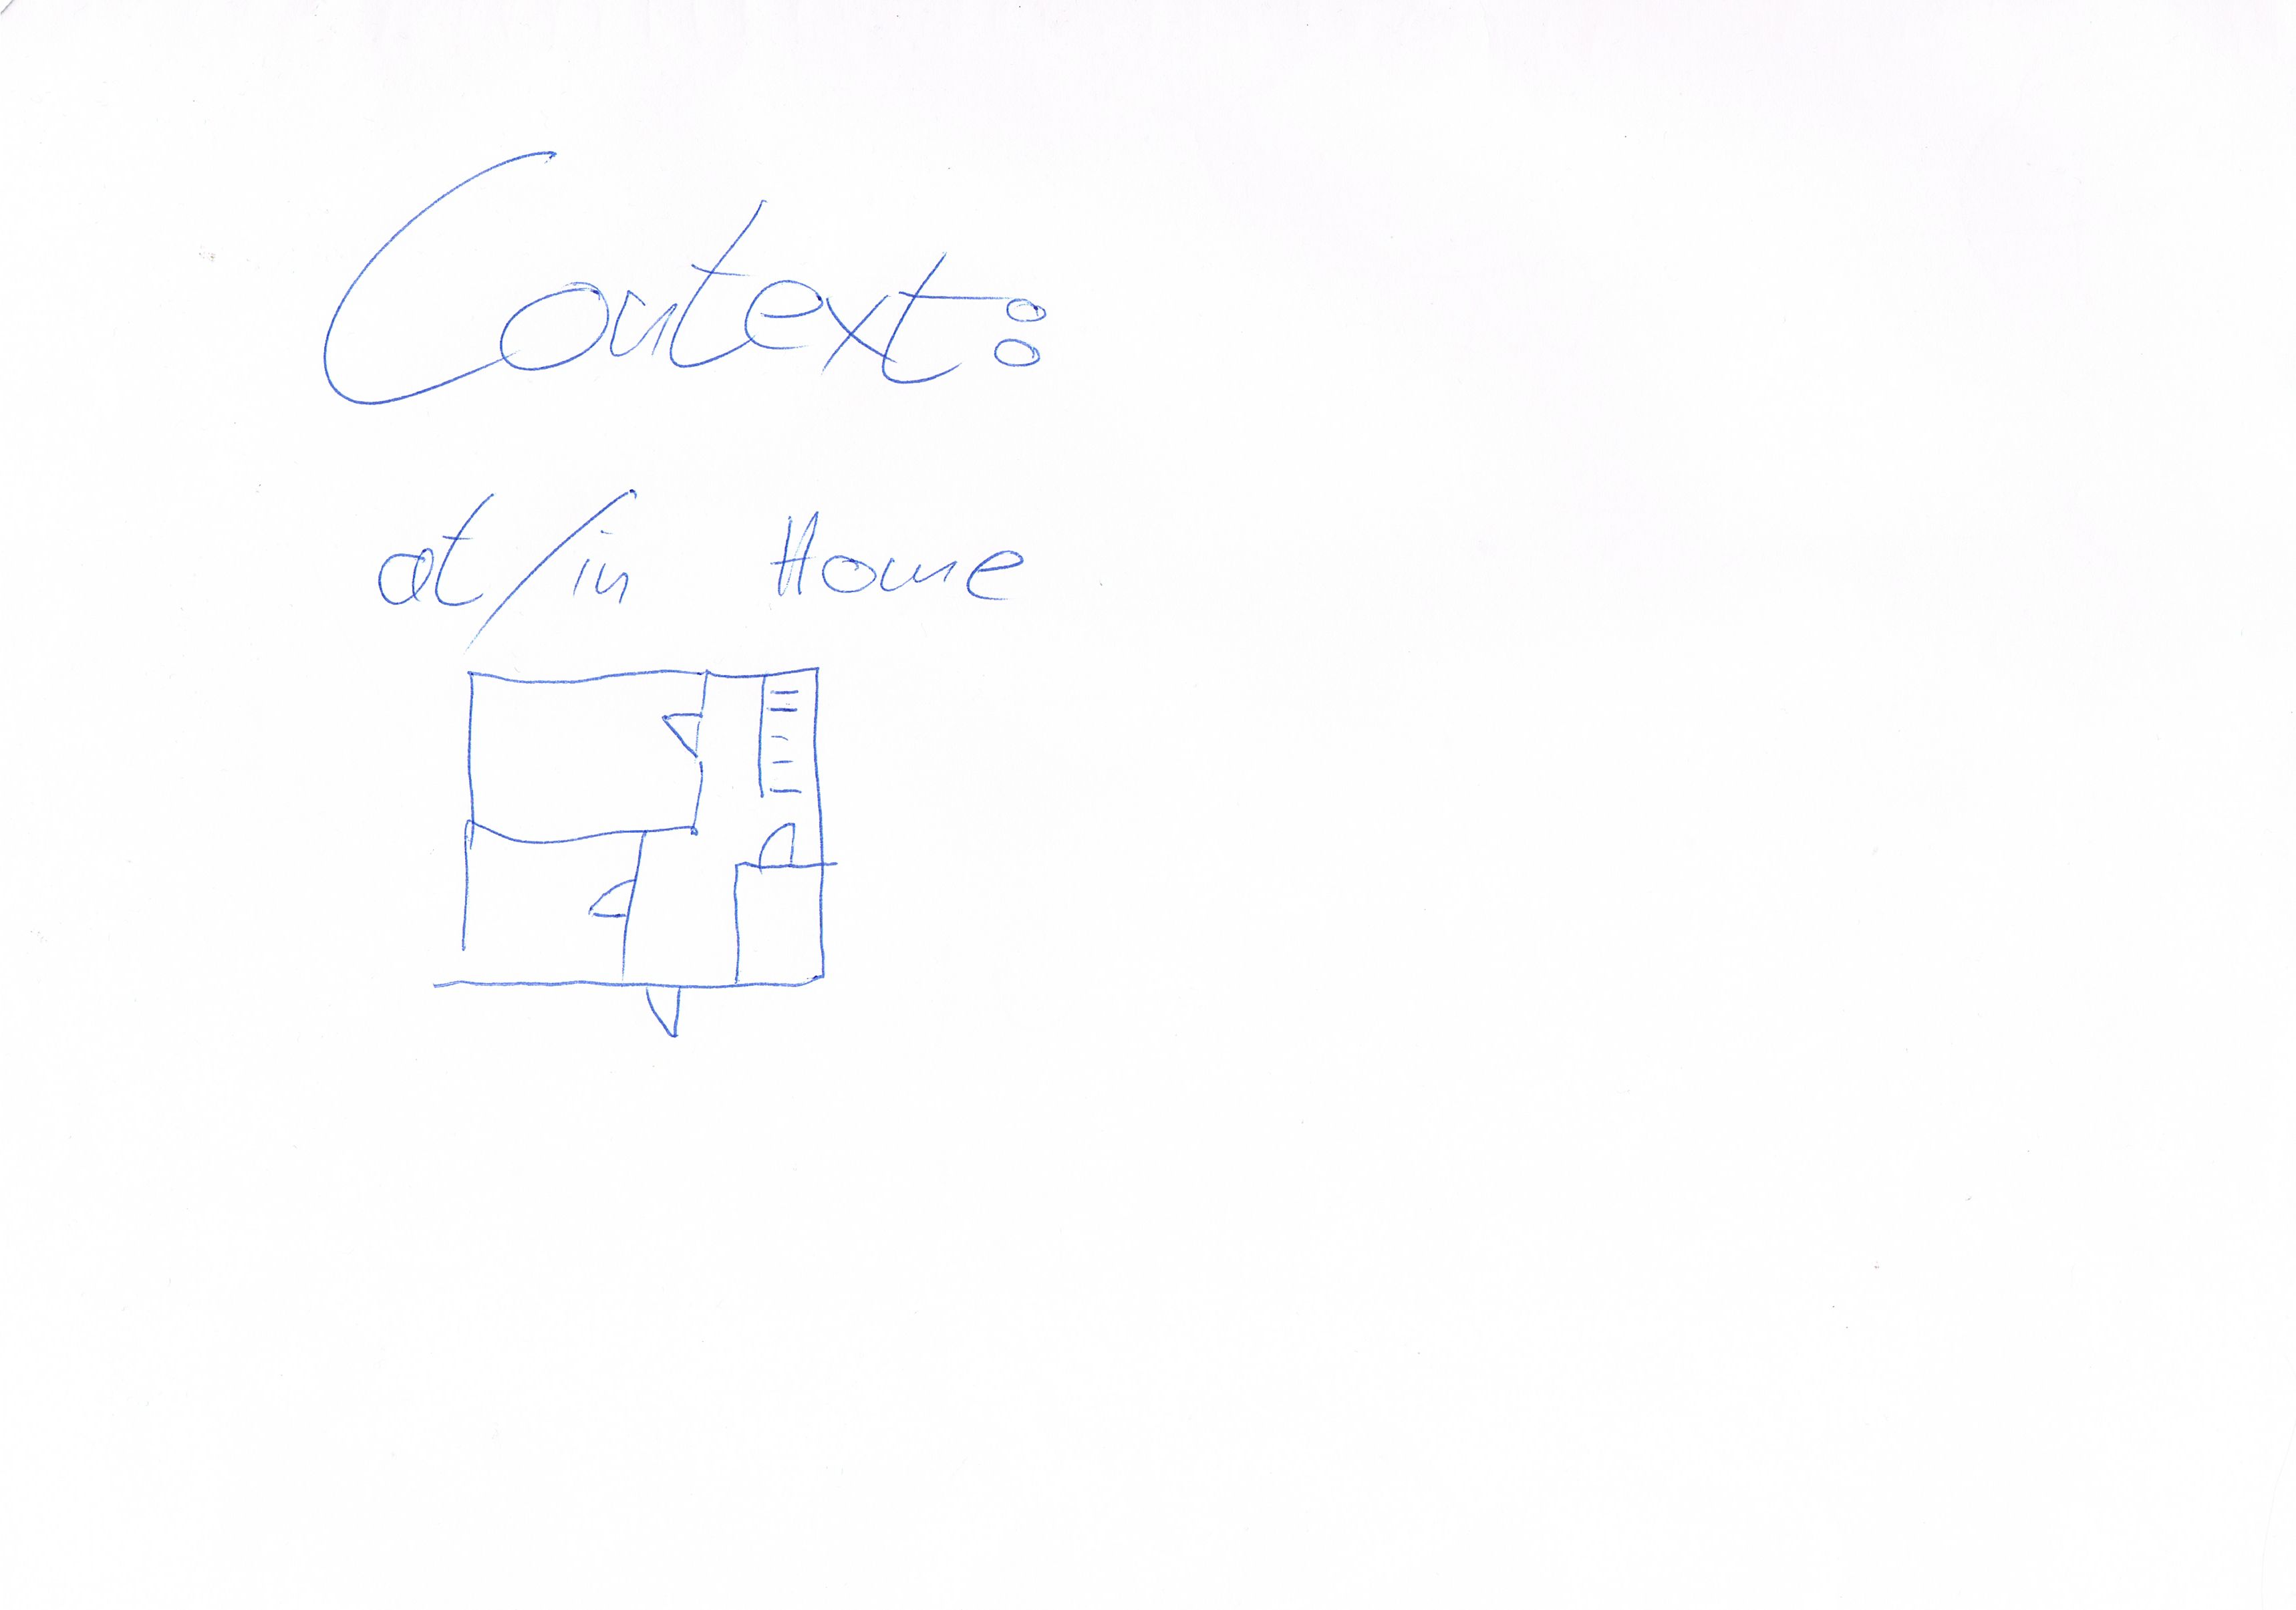 Context:
at/in Home